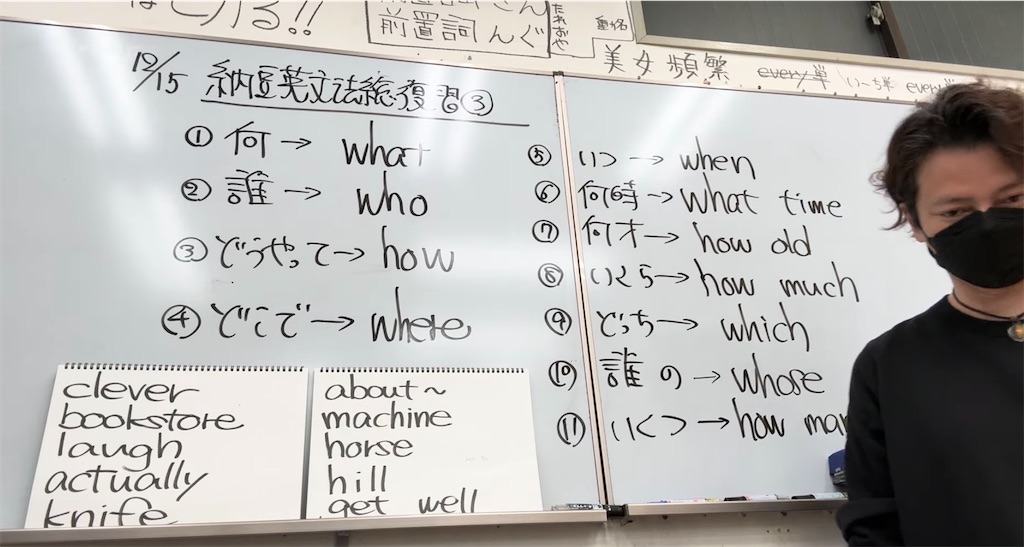 はとがる!!
前置詞 んぐ
美女頻繁 every単 い〜ち単 every
12/15 納豆英文法総復習③
① 何→ what
② 誰→ who
③ どうやって→ how
④ どこで→ where
⑤ いつ→ when
⑥ 何時→ what time
⑦ 何才→ how old
⑧ いくら→ how much
⑨ どっち→ which
⑩ 誰の→ whose
⑪ いくつ→ how
clever
bookstore
laugh
actually
knife
about~
machine
horse
hill
get well